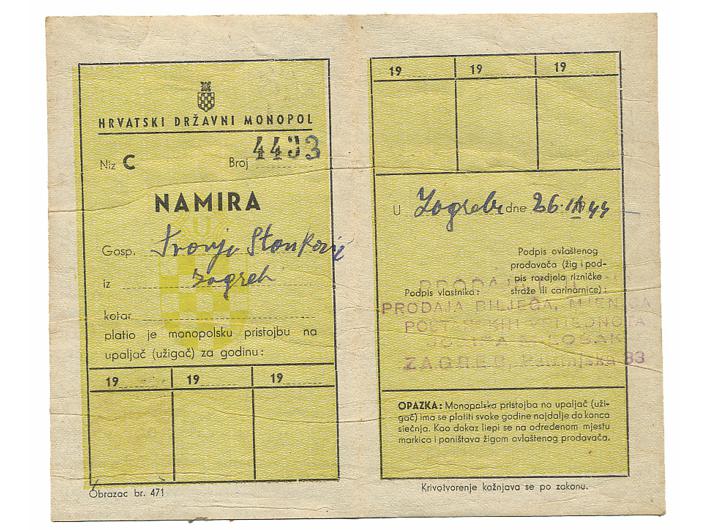 HRVATSKI DRŽAVNI MONOPOL
Niz C Broj 4403
NAMIRA
Gosp. Franjo Stanković
iz Zagreb
kotar
platio je monopolsku pristojbu na
upaljač (užigač) za godinu:
19 19 19
Obrazac br. 471
19 19 19
U Zagrebu dne 26. 44
Podpis ovlaštenog
prodavača (žig i pod-
pis razdjela rizničke
straže ili carinarnice):
Podpis vlastnika:
PRODAJA BILJEGA, MJENICA
ZAGREB 83
OPAZKA: Monopolska pristojba na upaljač (uži-
gač) ima se platiti svake godine najdalje do konca
siečnja. Kao dokaz liepi se na određenom mjestu
markica i poništava žigom ovlaštenog prodavača.
Krivotvorenje kažnjava se po zakonu.